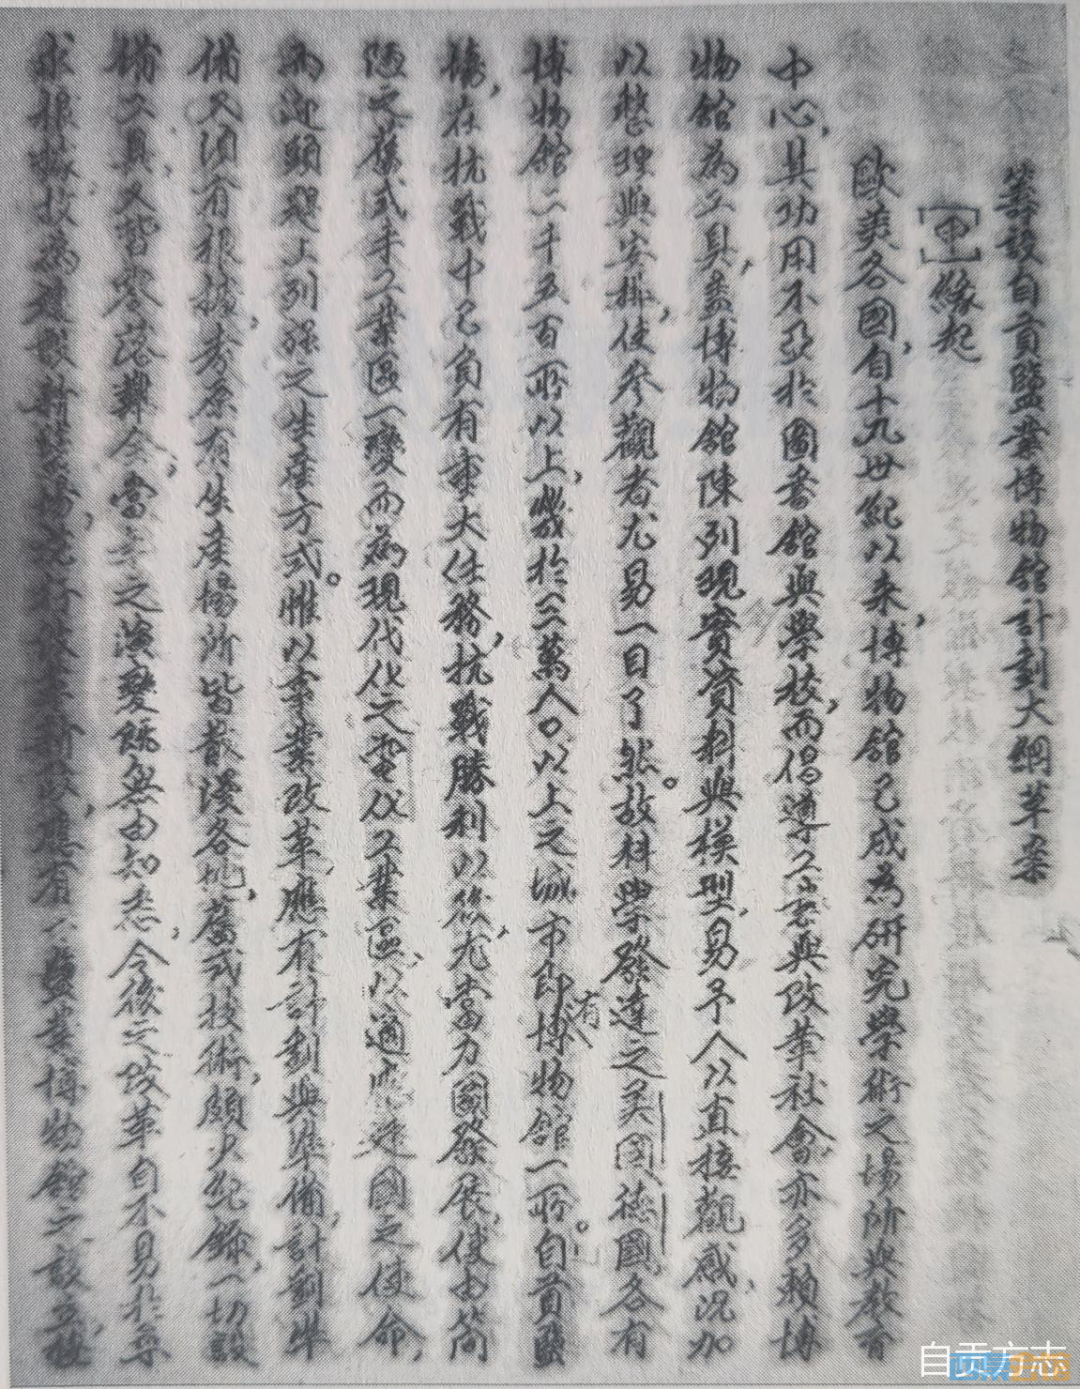 籌設自貢鹽業博物館計劃大綱草案
［甲］緣起
歐美各國，自十九世紀以來，博物館已成為研究學術之場所與教育
中心，其功用不亞於圖書館與學校，而倡導工業與改革社會，亦多賴博
物館為工具，蓋博物館陳列現實資料與模型，易予人以直接觀感，況加
以整理與安排，使參觀者尤易一目了然。故科學發達之美國德國，各有
博物館二千五百所以上，幾於三萬人口以上之城市即有博物館一所。自貢鹽
場，在抗戰中已負有重大任務，抗戰勝利以後，尤當力圖發展，使由簡
陋之舊式手工業區一變而為現代化之電化工業區，以適應建國之使命，
而迎頭趕上列強之生產方式。惟以事業改革，應有計劃與準備，計劃準
備又須有根據，考原有生產場所皆散漫各地，舊式技術，頗少紀錄，一切設
備工具，又皆零落，當年之演變，無由知悉，今後之改革自不易於
求根據，應有鹽業博物館之設立
自贡方志